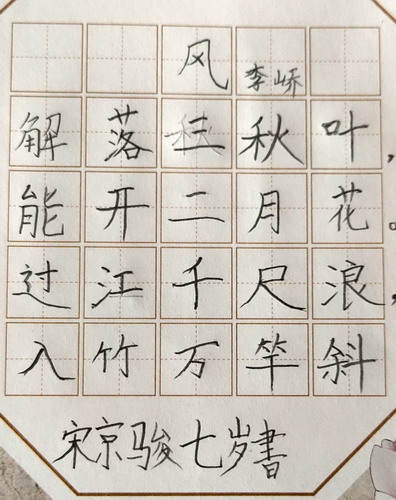 风 李峤
解落三秋叶，
能开二月花。
过江千尺浪，
入竹万竿斜
宋京骏七岁書